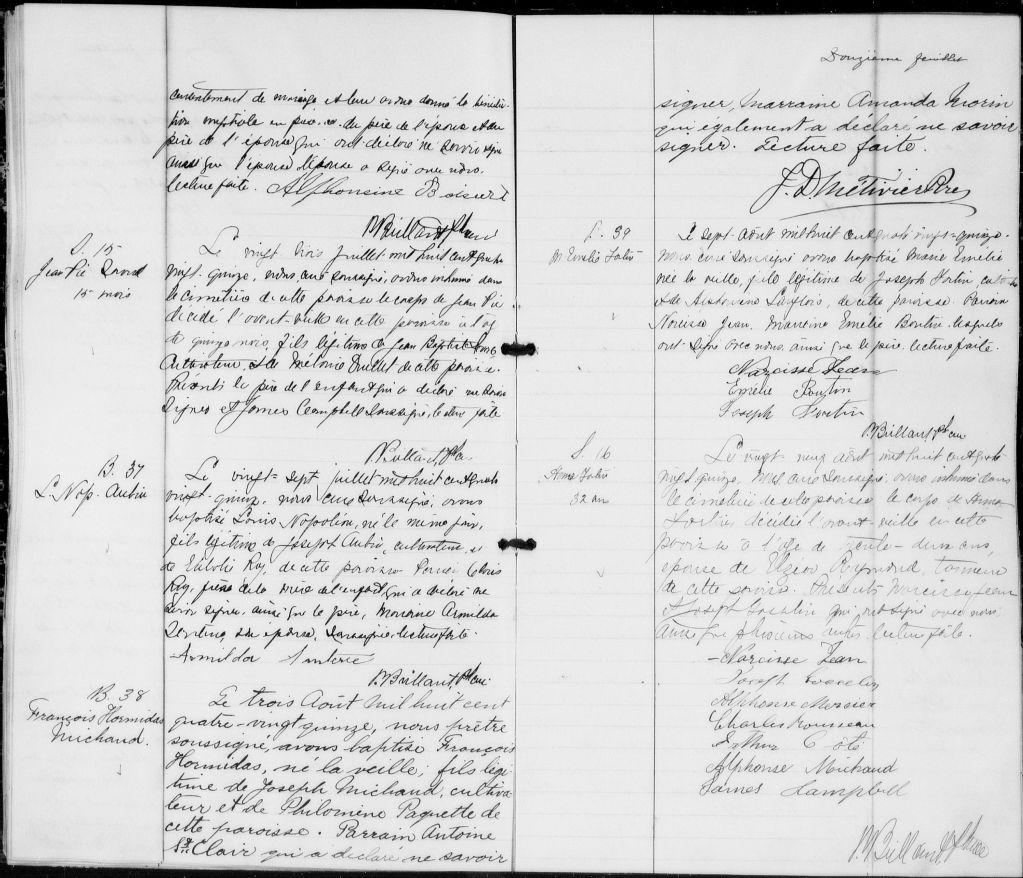 consentement de mariage et leur avons donné la bénédic
tion nuptiale en présence du père de l'époux et du
père de l'épouse qui ont déclaré ne savoir signer
ainsi que l'époux, l'épouse a signé avec nous.
Lecture faite. Alphonsine Boisvert
Brillant Ptre
S. 15
Jean Pie
15 mois
Le vingt trois juillet mil huit cent quatre
vingt-quinze, nous curé soussigné, avons inhumé dans
le cimetière de cette paroisse le corps de Jean Pie
décédé l'avant-veille en cette paroisse à l'âge
de quinze mois, fils légitime de Jean Baptiste
cultivateur et de Mélanie Ouellet de cette paroisse.
Présents le père de l'enfant qui a déclaré ne savoir
signer et James Campbell soussigné, lecture faite
Brillant Ptre
B. 37
L. Nap. Aubin
Le vingt-sept juillet mil huit cent quatre
vingt-quinze, nous curé soussigné, avons
baptisé Louis-Napoléon, né le même jour,
fils légitime de Joseph Aubin, cultivateur, et
de Roy, de cette paroisse Parrain
Roy, de la mère de l'enfant qui a déclaré ne
savoir signer, ainsi que le père, Marraine Armilda
son épouse, soussignée. lecture faite.
Armilda
B. Brillant, Ptre
B. 38
François Hormidas
Michaud.
Le trois Août mil huit cent
quatre-vingt quinze, nous prêtre
soussigné, avons baptisé François
Hormidas, né la veille, fils légi
time de Joseph Michaud, cultiva
teur et de Philomène Paquette de
cette paroisse. Parrain Antoine
St. Clair qui a déclaré ne savoir
Douzième feuillet
signer, Marraine Amanda Morin
qui également a déclaré ne savoir
signer. Lecture faite.
J. D. Métivier Ptre
B. 39
M. Emélie Fortin
Le sept août mil huit cent quatre vingt-quinze.
nous curé soussigné avons baptisé Marie Emélie
née la veille, fille légitime de Joseph Fortin,
et de Langlois, de cette paroisse. Parrain
Narcisse Jean, Marraine Emélie Boutin lesquels
ont signé avec nous. ainsi que le père. lecture faite.
Narcisse Jean
Emélie Boutin
Joseph Fortin
Brillant, Ptre
S. 16
Anna Fortin
32 ans
Le vingt août mil huit cent quatre
vingt-quinze, Nous curé soussigné avons inhumé dans
le cimetière de cette paroisse le corps de Anna
Fortin décédée l'avant-veille en cette
paroisse à l'âge de trente-deux ans,
épouse de Elzear Raymond,
de cette paroisse. Présents Narcisse Jean
et Joseph Gosselin qui ont signé avec nous
ainsi que plusieurs autres. lecture faite.
Narcisse Jean
Joseph Gosselin
Alphonse Mercier
Charles Rousseau
Arthur Côté
Alphonse Michaud
James Campbell
Brillant Ptre